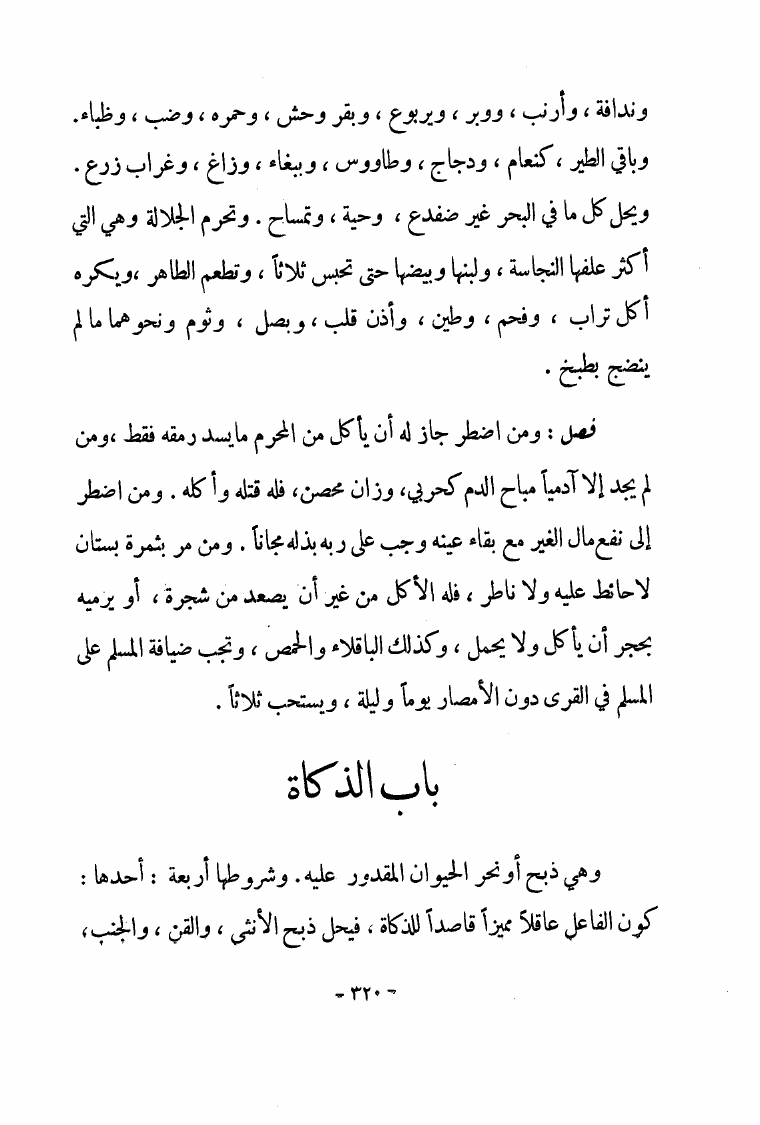 وندافة ، وأرنب ، ووبر ، ويربوع ، وبقر وحش ، وحمره ، وضب ، وظباء.
وباقي الطير ، كنعام ، ودجاج ، وطاووس ، وببغاء ، وزاغ ، وغراب زرع .
ويحل كل ما في البحر غير ضفدع ، وحية ، وتمساح . وتحرم الجلالة وهي التي
أكثر علفها النجاسة ، ولبنها وبيضها حتى تحبس ثلاثاً ، وتطعم الطاهر ،ويكره
أكل تراب ، وفحم ، وطين ، وأذن قلب ، وبصل ، وثوم ونحوهما ما لم
ينضج بطبخ .
فصل : ومن اضطر جاز له أن يأكل من المحرم مايسد رمقه فقط ،ومن
لم يجد إلا آدمياً مباح الدم كحربي، وزان محصن، فله قتله وأكله . ومن اضطر
إلى نفع مال الغير مع بقاء عينه وجب على ربه بذله مجاناً . ومن مر بثمرة بستان
لاحائط عليه ولا ناطر ، فله الأكل من غير أن يصعد من شجرة ، أو يرميه
بحجر أن يأكل ولا يحمل ، وكذلك الباقلاء والحمص ، وتجب ضيافة المسلم على
المسلم في القرى دون الأمصار يوماً وليلة ، ويستحب ثلاثاً .
باب الذكاة
وهي ذبح أو نحر الحيوان المقدور عليه . وشروطها أربعة : أحدها :
كون الفاعل عاقلاً مميزاً قاصداً للذكاة ، فيحل ذبح الأنثى ، والقن ، والجنب،
- ٣٢٠ -